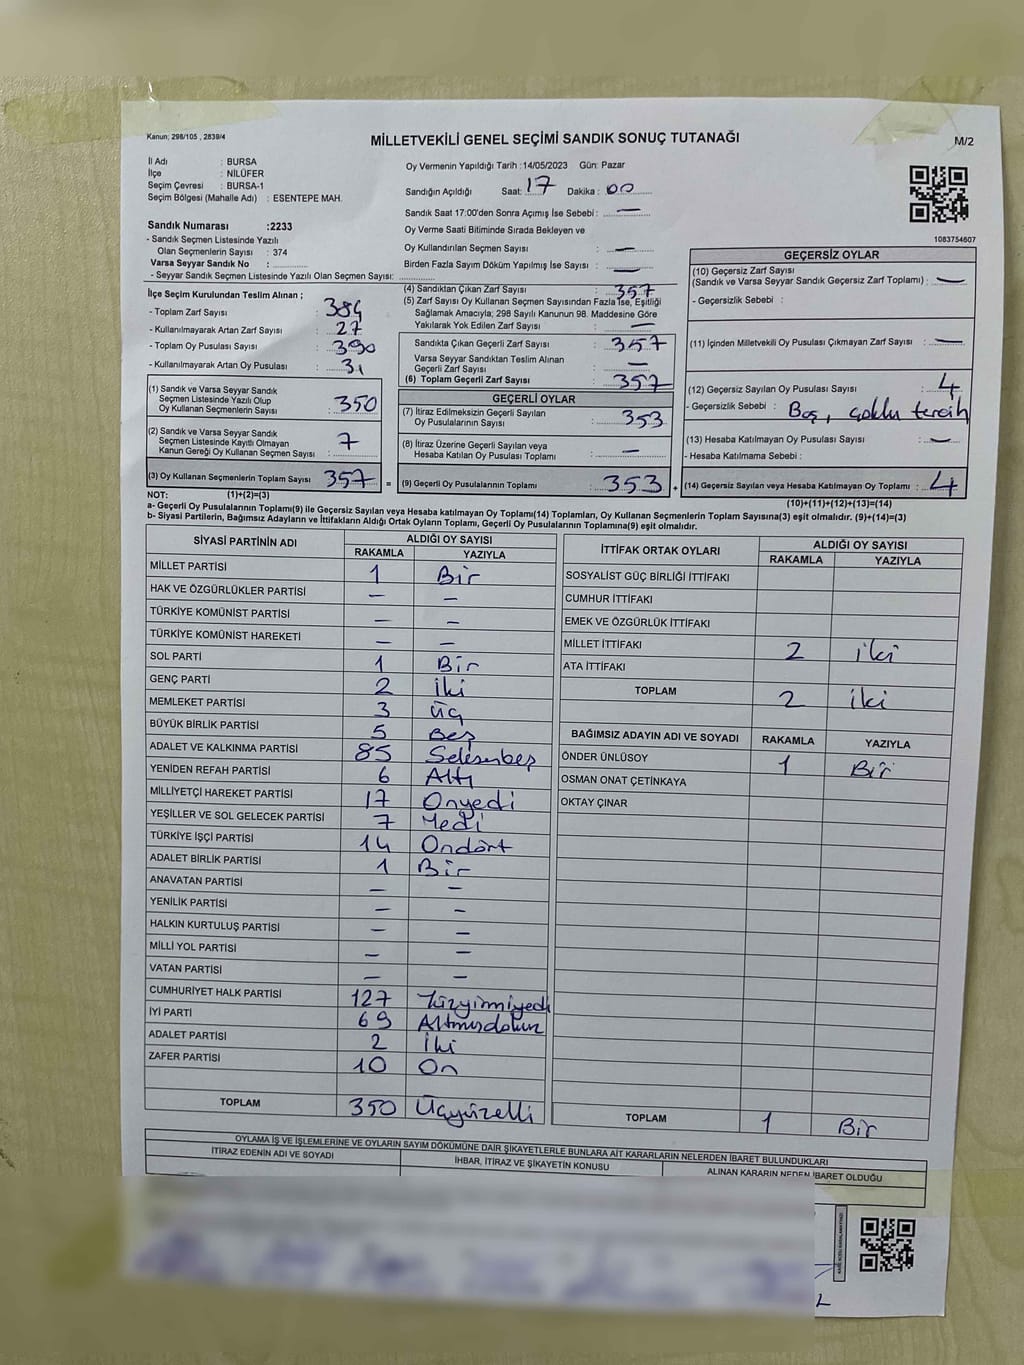 Kanun; 298/105 , 2839/4
MİLLETVEKİLİ GENEL SEÇİMİ SANDIK SONUÇ TUTANAĞI
M/2
İl Adı : BURSA
İlçe : NİLÜFER
Seçim Çevresi : BURSA-1
Seçim Bölgesi (Mahalle Adı) : ESENTEPE MAH.
Sandık Numarası :2233
- Sandık Seçmen Listesinde Yazılı
Olan Seçmenlerin Sayısı : 374
Varsa Seyyar Sandık No :
- Seyyar Sandık Seçmen Listesinde Yazılı Olan Seçmen Sayısı:
Oy Vermenin Yapıldığı Tarih :14/05/2023 Gün: Pazar
Sandığın Açıldığı Saat: 17 Dakika : 00
Sandık Saat 17:00'den Sonra Açımış İse Sebebi : —
Oy Verme Saati Bitiminde Sırada Bekleyen ve
Oy Kullandırılan Seçmen Sayısı : —
Birden Fazla Sayım Döküm Yapılmış İse Sayısı : —
1083754607
İlçe Seçim Kurulundan Teslim Alınan ;
- Toplam Zarf Sayısı : 384
- Kullanılmayarak Artan Zarf Sayısı : 27
- Toplam Oy Pusulası Sayısı : 390
- Kullanılmayarak Artan Oy Pusulası : 31
(1) Sandık ve Varsa Seyyar Sandık
Seçmen Listesinde Yazılı Olup
Oy Kullanan Seçmenlerin Sayısı : 350
(2) Sandık ve Varsa Seyyar Sandık
Seçmen Listesinde Kayıtlı Olmayan
Kanun Gereği Oy Kullanan Seçmen Sayısı : 7
(3) Oy Kullanan Seçmenlerin Toplam Sayısı : 357 =
(4) Sandıktan Çıkan Zarf Sayısı : 357
(5) Zarf Sayısı Oy Kullanan Seçmen Sayısından Fazla İse, Eşitliği
Sağlamak Amacıyla; 298 Sayılı Kanunun 98. Maddesine Göre
Yakılarak Yok Edilen Zarf Sayısı : —
Sandıkta Çıkan Geçerli Zarf Sayısı : 357
Varsa Seyyar Sandıktan Teslim Alınan
Geçerli Zarf Sayısı : —
(6) Toplam Geçerli Zarf Sayısı : 357
GEÇERLİ OYLAR
(7) İtiraz Edilmeksizin Geçerli Sayılan
Oy Pusulalarının Sayısı : 353
(8) İtiraz Üzerine Geçerli Sayılan veya
Hesaba Katılan Oy Pusulası Toplamı : —
(9) Geçerli Oy Pusulalarının Toplamı : 353 +
GEÇERSİZ OYLAR
(10) Geçersiz Zarf Sayısı
(Sandık ve Varsa Seyyar Sandık Geçersiz Zarf Toplamı) : —
- Geçersizlik Sebebi :
(11) İçinden Milletvekili Oy Pusulası Çıkmayan Zarf Sayısı : —
(12) Geçersiz Sayılan Oy Pusulası Sayısı : 4
- Geçersizlik Sebebi : Boş, çoklu tercih
(13) Hesaba Katılmayan Oy Pusulası Sayısı : —
- Hesaba Katılmama Sebebi :
(14) Geçersiz Sayılan veya Hesaba Katılmayan Oy Toplamı : 4
NOT: (1)+(2)=(3)
(10)+(11)+(12)+(13)=(14)
a- Geçerli Oy Pusulalarının Toplamı(9) ile Geçersiz Sayılan veya Hesaba Katılmayan Oy Toplamı(14) Toplamları, Oy Kullanan Seçmenlerin Toplam Sayısına(3) eşit olmalıdır. (9)+(14)=(3)
b- Siyasi Partilerin, Bağımsız Adayların ve İttifakların Aldığı Ortak Oyların Toplamı, Geçerli Oy Pusulalarının Toplamına(9) eşit olmalıdır.
SİYASİ PARTİNİN ADI ALDIĞI OY SAYISI
RAKAMLA YAZIYLA
MİLLET PARTİSİ 1 Bir
HAK VE ÖZGÜRLÜKLER PARTİSİ — —
TÜRKİYE KOMÜNİST PARTİSİ — —
TÜRKİYE KOMÜNİST HAREKETİ — —
SOL PARTİ 1 Bir
GENÇ PARTİ 2 İki
MEMLEKET PARTİSİ 3 üç
BÜYÜK BİRLİK PARTİSİ 5 Beş
ADALET VE KALKINMA PARTİSİ 85 Seksenbeş
YENİDEN REFAH PARTİSİ 6 Altı
MİLLİYETÇİ HAREKET PARTİSİ 17 Onyedi
YEŞİLLER VE SOL GELECEK PARTİSİ 7 Yedi
TÜRKİYE İŞÇİ PARTİSİ 14 Ondört
ADALET BİRLİK PARTİSİ 1 Bir
ANAVATAN PARTİSİ — —
YENİLİK PARTİSİ — —
HALKIN KURTULUŞ PARTİSİ — —
MİLLİ YOL PARTİSİ — —
VATAN PARTİSİ — —
CUMHURİYET HALK PARTİSİ 127 Yüzyirmiyedi
İYİ PARTİ 69 Altmışdokuz
ADALET PARTİSİ 2 İki
ZAFER PARTİSİ 10 On
TOPLAM 350 Üçyüzelli
İTTİFAK ORTAK OYLARI ALDIĞI OY SAYISI
RAKAMLA YAZIYLA
SOSYALİST GÜÇ BİRLİĞİ İTTİFAKI
CUMHUR İTTİFAKI
EMEK VE ÖZGÜRLÜK İTTİFAKI
MİLLET İTTİFAKI 2 iki
ATA İTTİFAKI
TOPLAM 2 iki
BAĞIMSIZ ADAYIN ADI VE SOYADI RAKAMLA YAZIYLA
ÖNDER ÜNLÜSOY 1 Bir
OSMAN ONAT ÇETİNKAYA
OKTAY ÇINAR
TOPLAM 1 Bir
OYLAMA İŞ VE İŞLEMLERİNE VE OYLARIN SAYIM DÖKÜMÜNE DAİR ŞİKAYETLERLE BUNLARA AİT KARARLARIN NELERDEN İBARET BULUNDUKLARI
İTİRAZ EDENİN ADI VE SOYADI İHBAR, İTİRAZ VE ŞİKAYETİN KONUSU ALINAN KARARIN NEDEN İBARET OLDUĞU